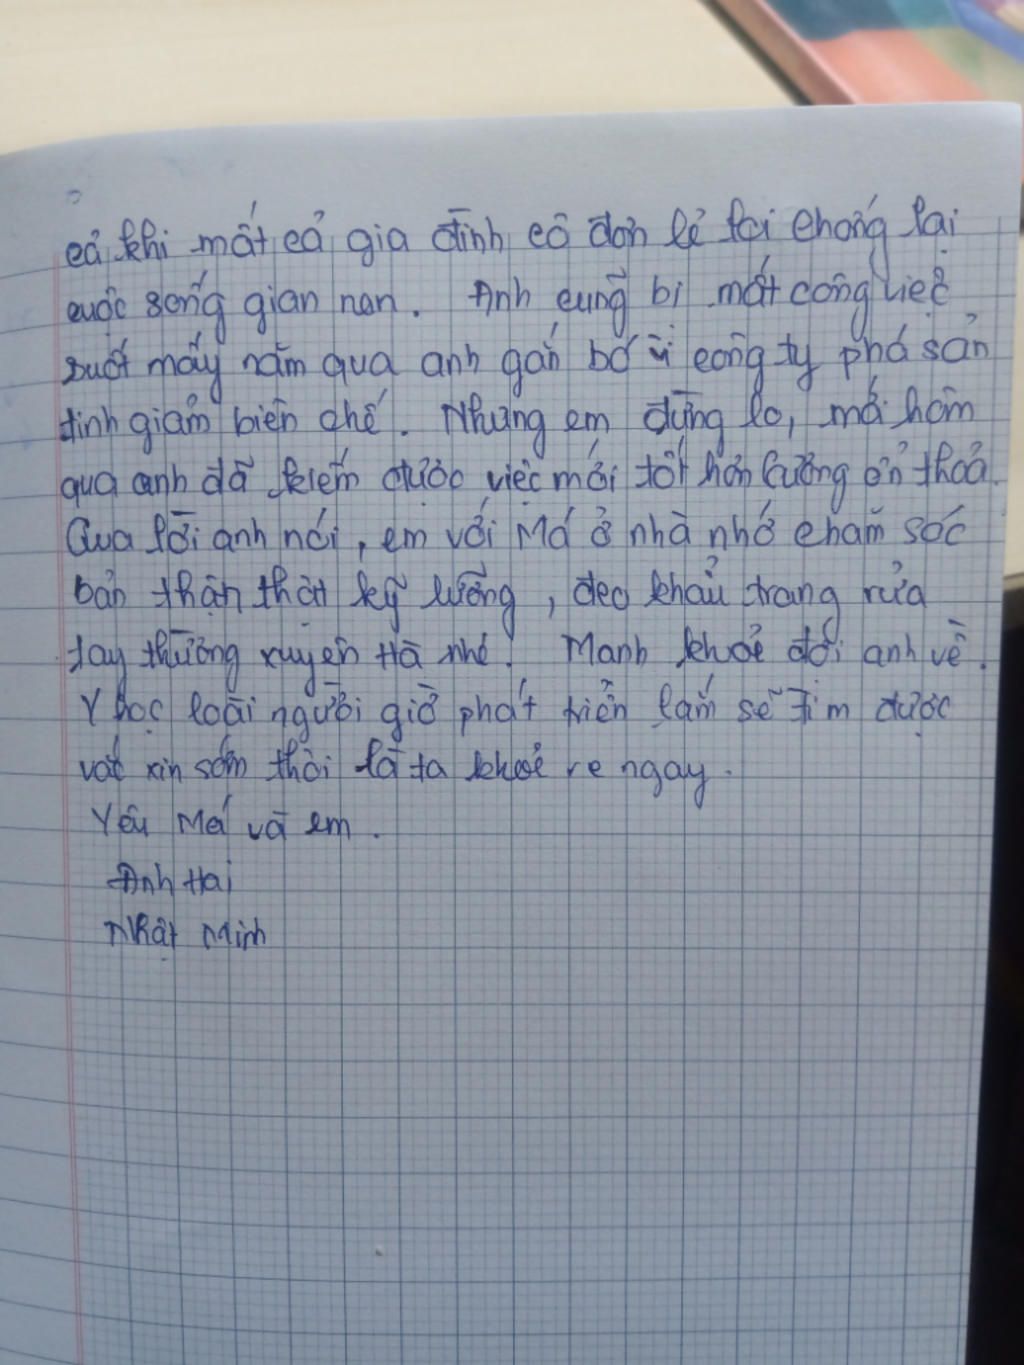 cả khi mất cả gia đình cô đơn lẻ loi chống lại
cuộc sống gian nan. Anh cũng bị mất công việc
suốt mấy năm qua anh gắn bó vì công ty phá sản
tinh giảm biên chế. Nhưng em đừng lo, mới hôm
qua anh đã kiếm được việc mới tốt hơn lương ổn thoả.
Qua lời anh nói, em với Má ở nhà nhớ chăm sóc
bản thân thật kỹ lưỡng, đeo khẩu trang rửa
tay thường xuyên Hà nhé. Mạnh khoẻ đợi anh về.
Y học loài người giờ phát triển lắm sẽ tìm được
vắc xin sớm thôi là ta khoẻ re ngay.
Yêu Má và em.
Anh Hai
Nhật Minh